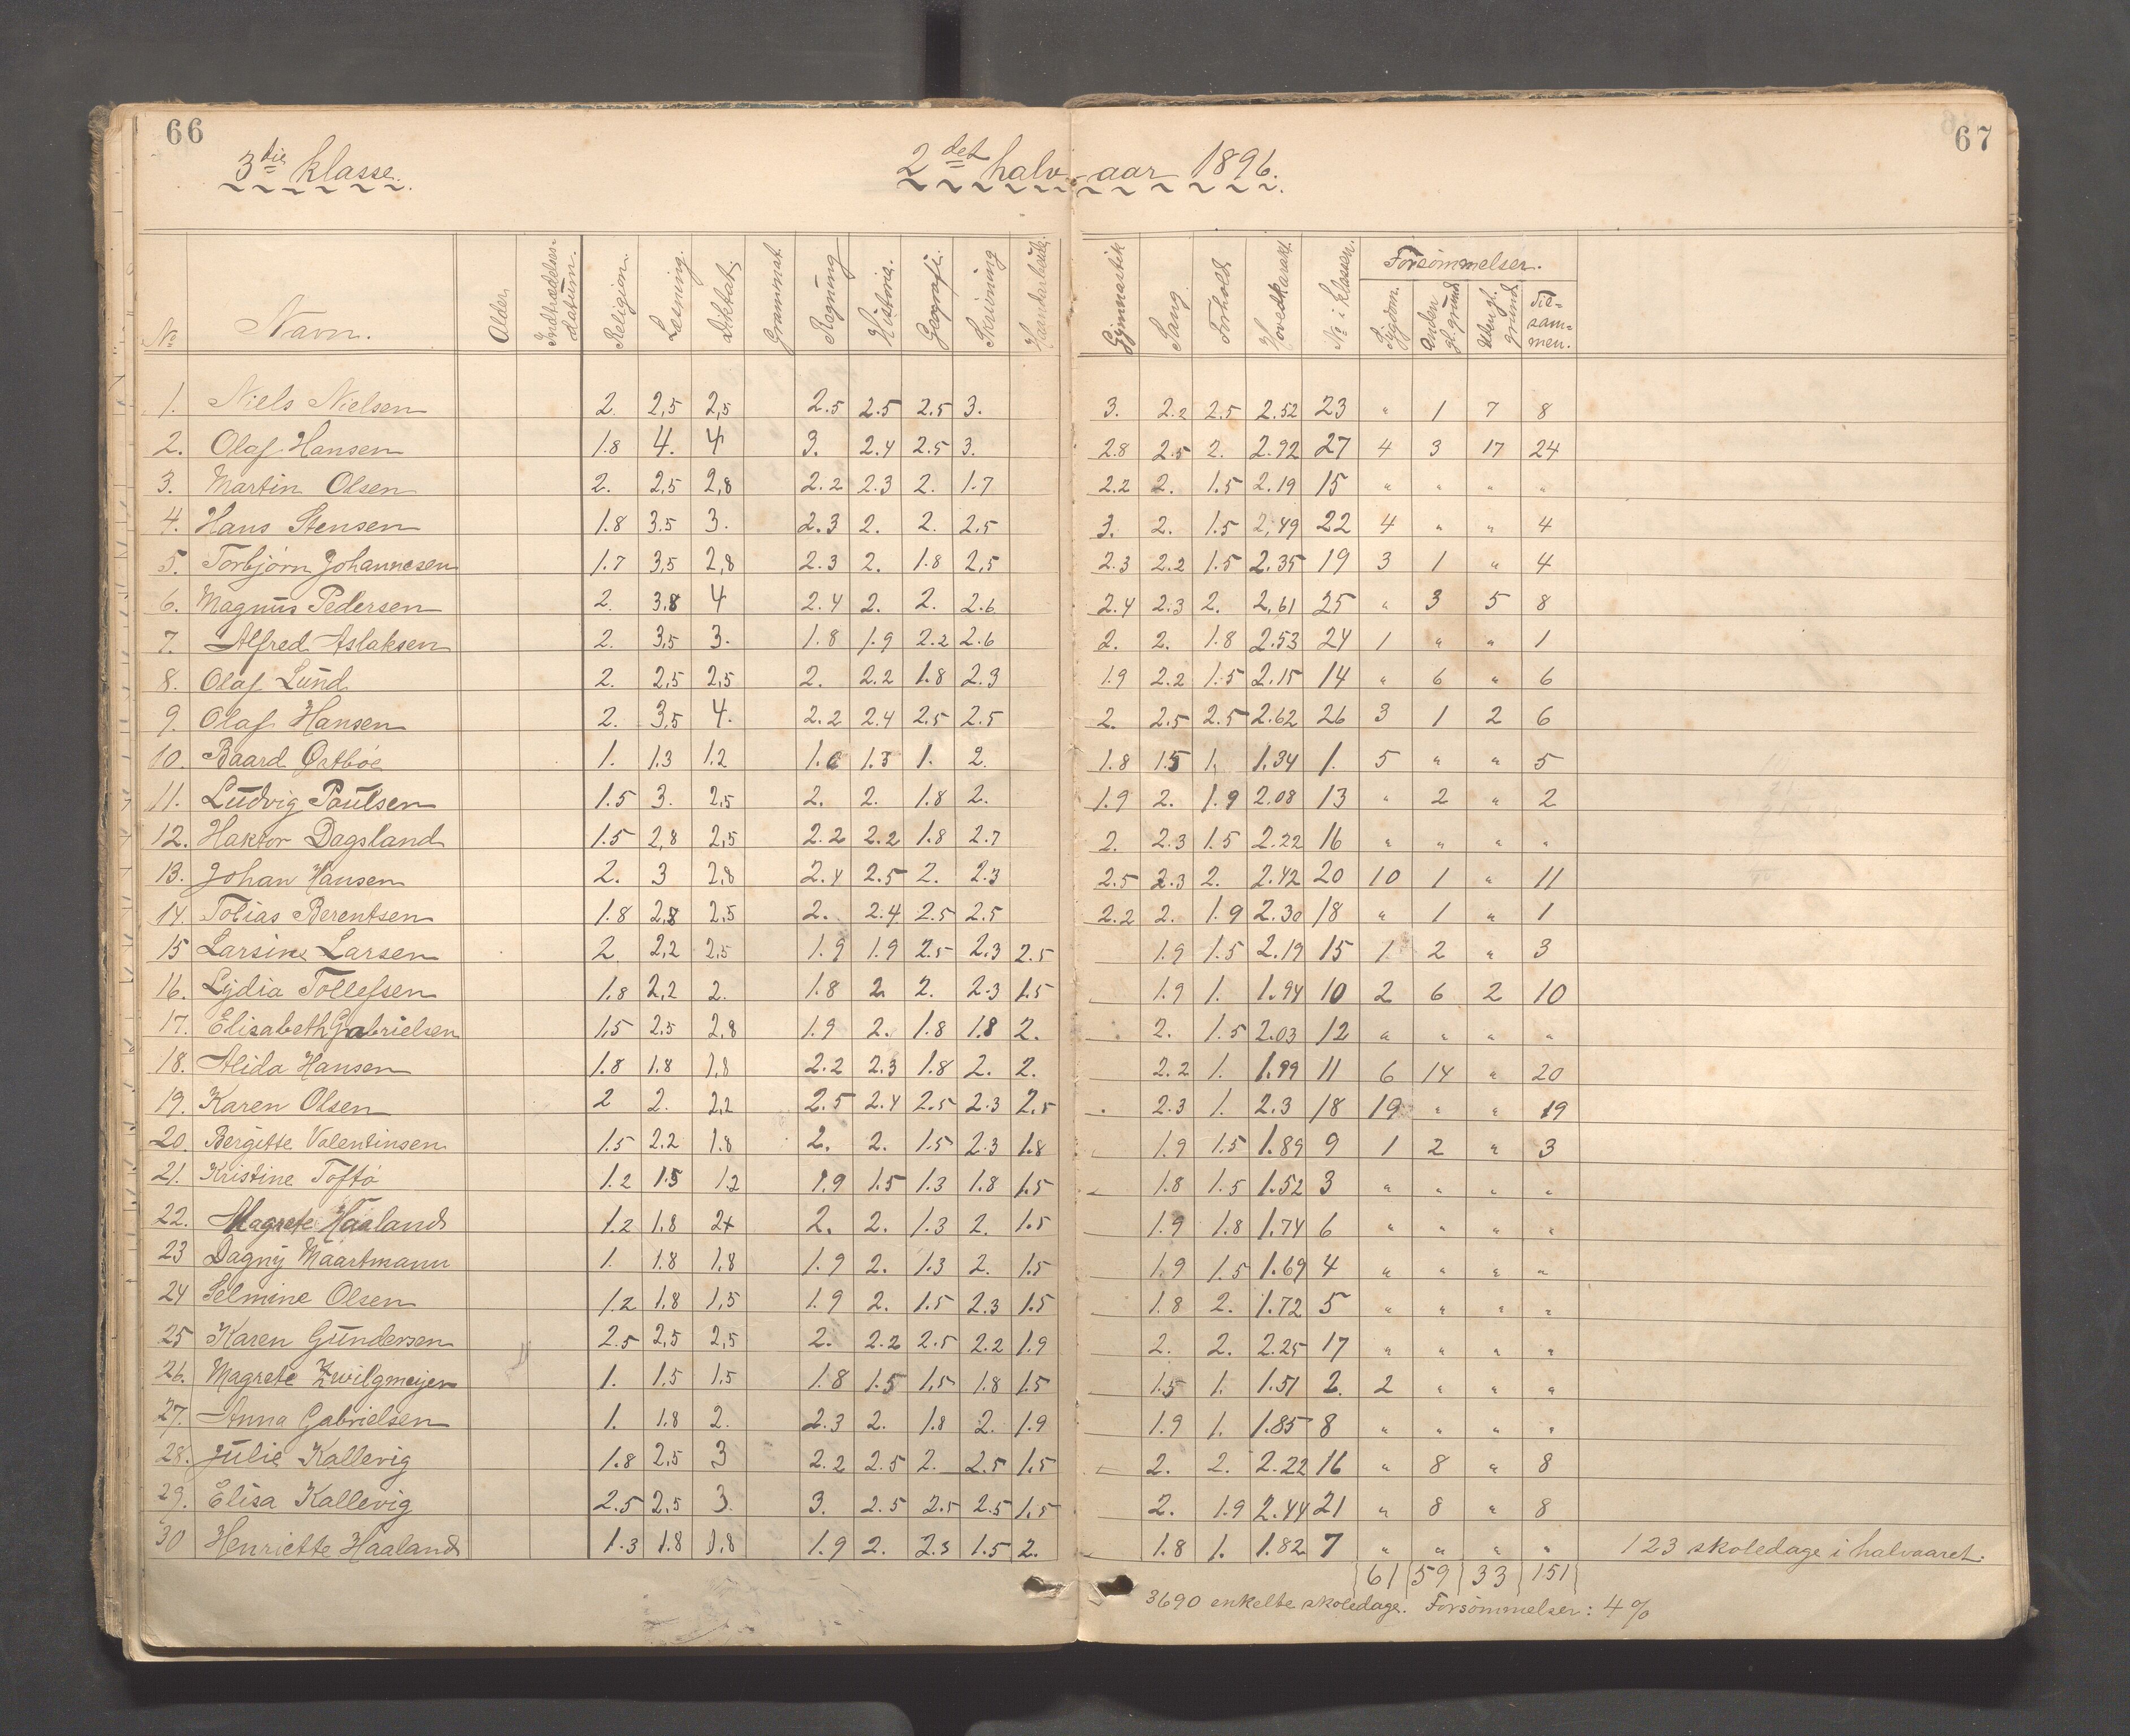 66
67
3die klasse.
2det halv-aar 1896.
No Navn. Alder Indtrædelsesdatum. Religion. Læsning. Diktat. Grammat. Regning Historie. Geografi. Skrivning Haandarbeide. Gymnastik Sang. Forhold. Hovedkarakt. No i klassen. Forsømmelser. Sygdom. Anden gl. grund Uden gl. grund. Til-sam-men.
1. Niels Nielsen 2. 2,5 2,5 2.5 2.5 2.5 3. 3. 2.2 2.5 2.52 23 " 1 7 8
2. Olaf Hansen 1.8 4. 4 3. 2.4 2.5 3. 2.8 2.5 2. 2.92 27 4 3 17 24
3. Martin Olsen 2. 2,5 2,8 2.2 2.3 2. 1.7 2.2 2. 1.5 2.19 15 " " " "
4. Hans Stensen 1.8 3.5 3. 2.3 2. 2. 2.5 3. 2. 1.5 2.49 22 4 " " 4
5. Torbjørn Johannesen 1.7 3,5 2,8 2.3 2. 1.8 2,5 2.3 2.2 1.5 2.35 19 3 1 " 4
6. Magnus Pedersen 2. 3,8 4 2.4 2. 2. 2.6 2.4 2.3 2. 2,61 25 " 3 5 8
7. Alfred Aslaksen 2. 3,5 3. 1.8 1.9 2.2 2.6 2. 2. 1.8 2.53 24 1 " " 1
8. Olaf Lund 2. 2,5 2,5 2. 2.2 1.8 2.3 1.9 2.2 1.5 2.15 14 " 6 " 6
9. Olaf Hansen 2. 3,5 4. 2.2 2.4 2.5 2.5 2. 2.5 2.5 2.62 26 3 1 2 6
10. Baard Østbøe 1. 1.3 1.2 1. 1. 2. 1.8 1.5 1. 1.34 1. 5 " " 5
11. Ludvig Paulsen 1.5 3. 2,5 2. 2. 1.8 2. 1.9 2. 1.9 2.08 13 " 2 " 2
12. Haktor Dagsland 1.5 2,8 2,5 2.2 2.2 1.8 2.7 2. 2.3 1.5 2.22 16 " " " "
13. Johan Hansen 2. 3 2,8 2.4 2.5 2. 2.3 2.5 2.3 2. 2.42 20 10 1 " 11
14. Tobias Berentsen 1.8 2,8 2,5 2. 2.4 2.5 2.5 2.2 2. 1.9 2.30 18 " 1 " 1
15 Larsine Larsen 2 2,2 2,5 1.9 1.9 2.5 2.3 2.5 1.9 1.5 2.19 15 1 2 " 3
16. Lydia Tollefsen 1.8 2,2 2. 1.8 2. 2. 2.3 1.5 1.9 1. 1.94 10 2 6 2 10
17. Elisabeth Gabrielsen 1,5 2,5 2,8 1.9 2. 1.8 1.8 2. 2. 1.5 2.03 12 " " " "
18. Alida Hansen 1.8 1.8 1,8 2.2 2.3 1.8 2. 2. 2.2 1. 1.99 11 6 14 " 20
19. Karen Olsen 2 2. 2,2 2.5 2.4 2.5 2.3 2.5 2.3 1. 2.3 18 19 " " 19
20. Bergitte Valentinsen 1.5 2.2 1.8 2. 2. 1.5 2.3 1.8 1.9 1.5 1.89 9 1 2 " 3
21. Kristine Toftø 1.2 1.5 1.2 1.9 1.5 1.3 1.8 1.5 1.8 1.5 1.52 3 " " " "
22. Magrete Haaland 1.2 1.8 2+ 2. 2. 1.3 2. 1.5 1.9 1.8 1.74 6 " " " "
23 Dagny Maartmann 1. 1.8 1,8 1.9 2. 1.3 2. 1.5 1.9 1.5 1.69 4 " " " "
24 Selmine Olsen 1.2 1.8 1,5 1.9 2. 1.5 2.3 1.5 1.8 2. 1.72 5 " " " "
25 Karen Gundersen 2.5 2,5 2,5 2. 2.2 2.5 2.2 1.9 2. 2. 2.25 17 " " " "
26. Magrete Zwilgmeyer 1. 1,5 1,5 1.8 1.5 1,5 1.8 1.5 1.5 1. 1.51 2. 2 " " "
27. Anna Gabrielsen 1. 1.8 2. 2.3 2. 1.8 2. 1.9 1.9 1. 1.85 8 " " " "
28. Julie Kallevig 1.8 2,5 3 2.2 2.5 2. 2.5 1.5 2. 2. 2.22 16 " 8 " 8
29. Elisa Kallevig 2.5 2,5 3. 3. 2.5 2.5 2.5 1.5 2. 1.9 2.44 21 " 8 " 8
30 Henriette Haaland 1.3 1.8 1,8 1.9 2. 2.3 1.5 2. 1.8 1. 1.82 7 " " " " 123 skoledage i halvaaret.
61 59 33 151
3690 enkelte skoledage. Forsømmelser: 4 %